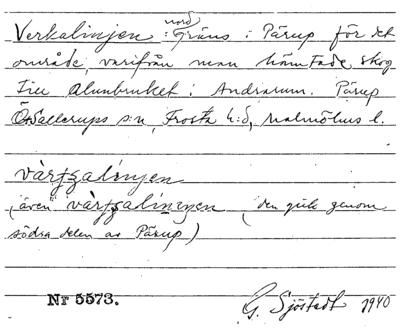 nord
Verkalinjen : Gräns i Pärup för det
område, varifrån man hämtade skog
till Alunbruket i Andrarum. Pärup
Ö. Sallerups s:n, Frosta h:d, Malmöhus l.
värkalinjen
(även värkalinjen (den gick genom
södra delen av Pärup)
Nr 5573.
G. Sjöstedt 1940